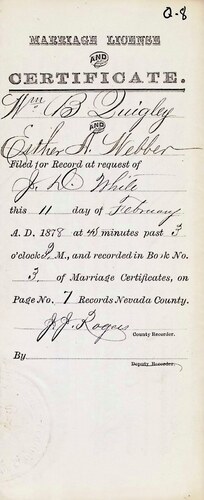 Q-8
MARRIAGE LICENSE
AND
CERTIFICATE.
Wm B Quigley
AND
Esther A. Webber
Filed for Record at request of
J. D. White
this 11 day of February
A. D. 1878 at 48 minutes past 3
o'clock P M., and recorded in Book No.
3. of Marriage Certificates, on
Page No. 7 Records Nevada County.
J. J. Rogers
County Recorder.
By
Deputy Recorder.